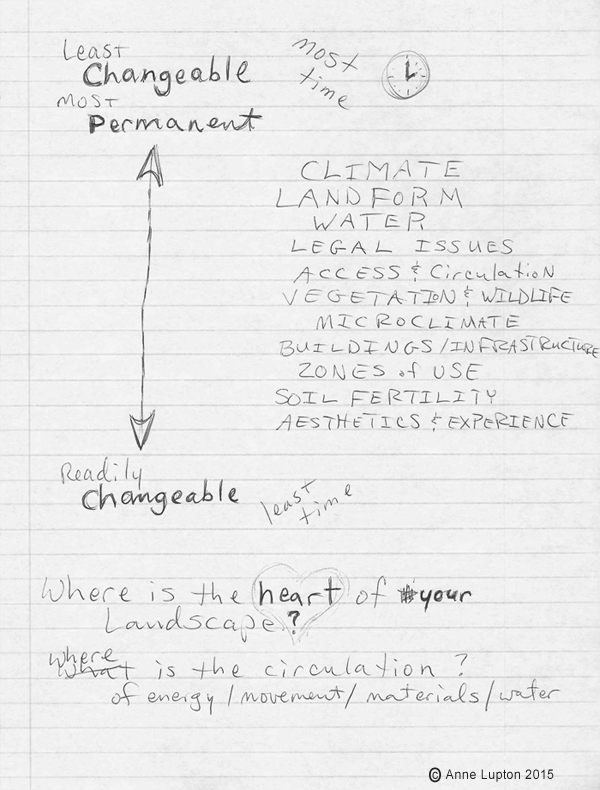 Least
Changeable
most
time
MOST
Permanent
CLIMATE
LANDFORM
WATER
LEGAL ISSUES
ACCESS & Circulation
VEGETATION & WILDLIFE
MICROCLIMATE
BUILDINGS/INFRASTRUCTURE
ZONES of USE
SOIL FERTILITY
AESTHETICS & EXPERIENCE
Readily
Changeable
least
time
Where is the heart of your
Landscape?
Where
What is the circulation?
of energy/movement/materials/water
© Anne Lupton 2015